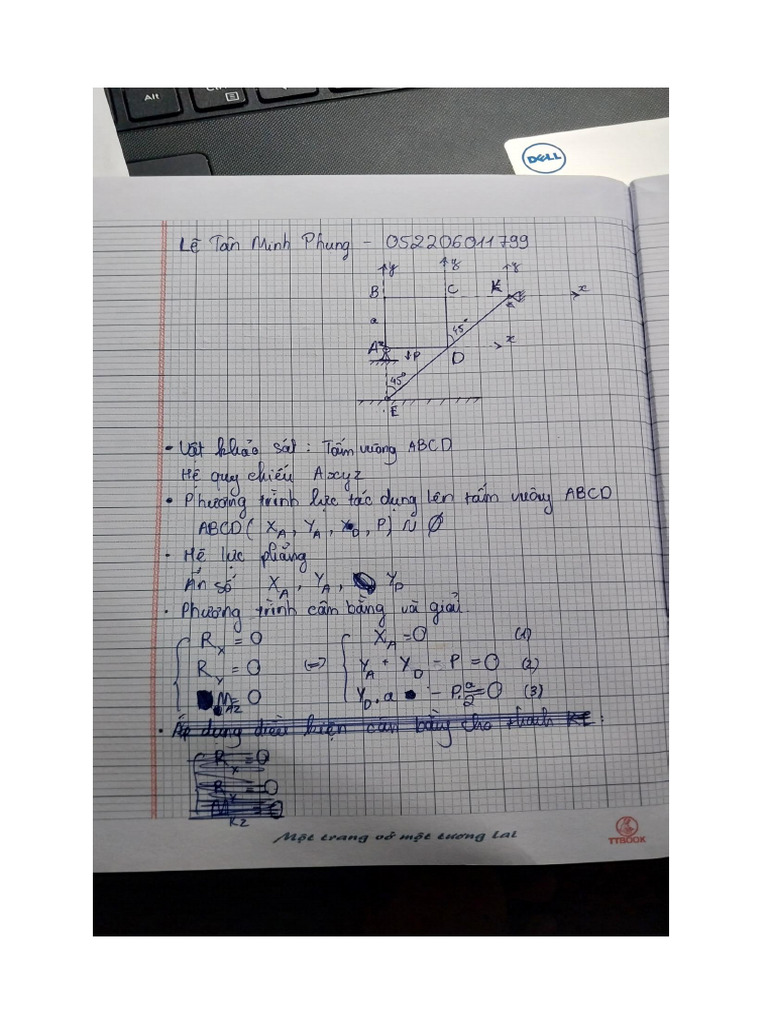 Alt
DELL
Lê Tấn Minh Phụng - 052206011799
y y y
B C K x
a 45°
A z x
↓P D
45°
E
• Vật khảo sát : Tấm vuông ABCD
Hệ quy chiếu Axyz
• Phương trình lực tác dụng lên tấm vuông ABCD
ABCD ( X_A, Y_A, Y_D, P) ~ Ø
• Hệ lực phẳng
Ẩn số X_A, Y_A, Y_D
• Phương trình cân bằng và giải.
{ R_x = 0 { X_A = 0 (1)
R_y = 0 (=) Y_A + Y_D - P = 0 (2)
M_Az = 0 Y_D.a - P.a/2 = 0 (3)
• Áp dụng điều kiện cân bằng cho thanh KE :
R_x = 0
R_y = 0
M_Kz = 0
Một trang vở một tương lai
TTBOOK